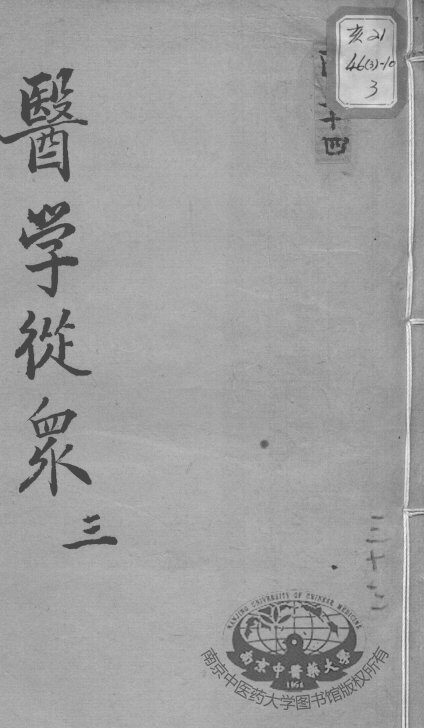 醫學從眾 三
亥21
46(3)-10
3
十四
三十二
NANJING UNIVERSITY OF CHINESE MEDICINE
南京中醫藥大學
1954
南京中医药大学图书馆版权所有